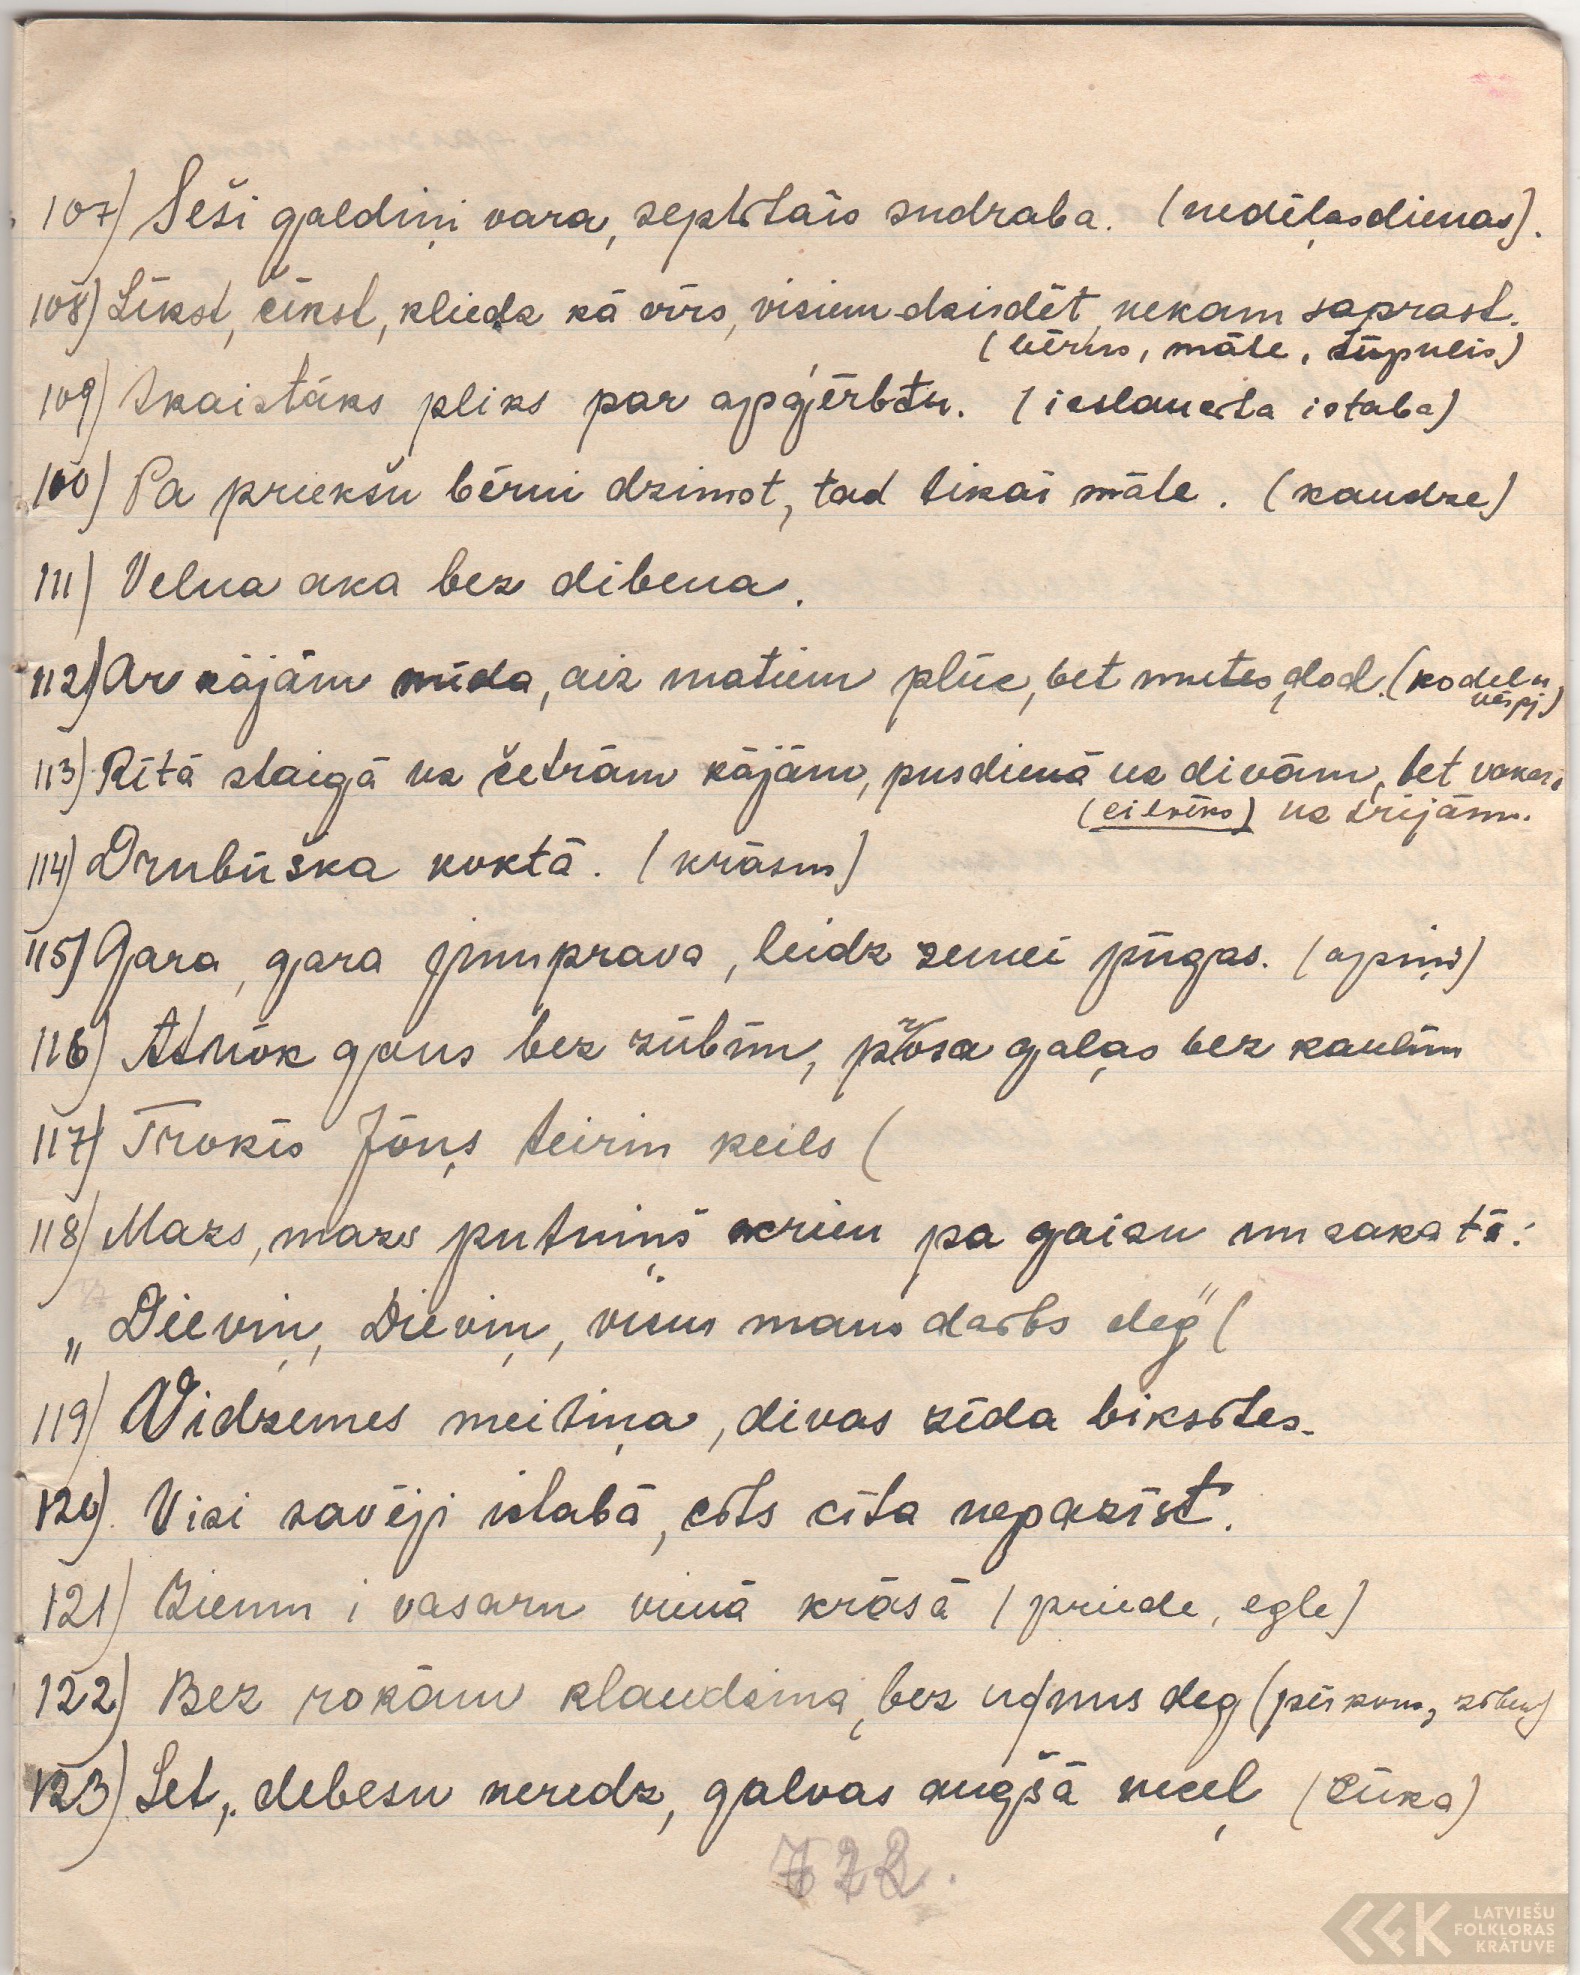 107) Seši galdiņi vara, septītais sudraba. (nedēļasdienas).
108) Līkst, čīkst, kliedz kā vīrs, visiem dzirdēt, nekam saprast.
(bērns, māte, šūpulis)
109) Skaistāks pliks par apģērbtu. (ieslaucīta istaba)
100) Pa priekšu bērni dzimst, tad tikai māte. (kaudze)
111) Velna aka bez dibena.
112) Ar kājām mīda, aiz matiem plūc, bet mutes dod. (kodeļu
vērpj)
113) Rītā staigā uz četrām kājām, pusdienā uz divām, bet vakarā
(cilvēks) uz trijām.
114) Drubūška koktā. (krāsns)
115) Gara, gara jumprava, leidz zemei pūgas. (apiņi)
116) Atnōk gons bez zūbim, prosa gaļas bez kaulim
117) Trokis Jōņs teirin keils (
118) Mazs, mazs putniņš skrien pa gaisu un saka tā:
„Dieviņ, Dieviņ, visus mans darbs deg" (
119) Vidzemes meitiņa, divas zīda biksītes.
120) Visi savēji istabā, cits cita nepazīst.
121) Ziemu i vasaru vienā krāsā (priede, egle)
122) Bez rokām klaudzina, bez uguns deg (pērkons, zibens)
123) Let, debesu neredz, galvas augšā neceļ (cūka)
722.
LATVIEŠU
FOLKLORAS
KRĀTUVE